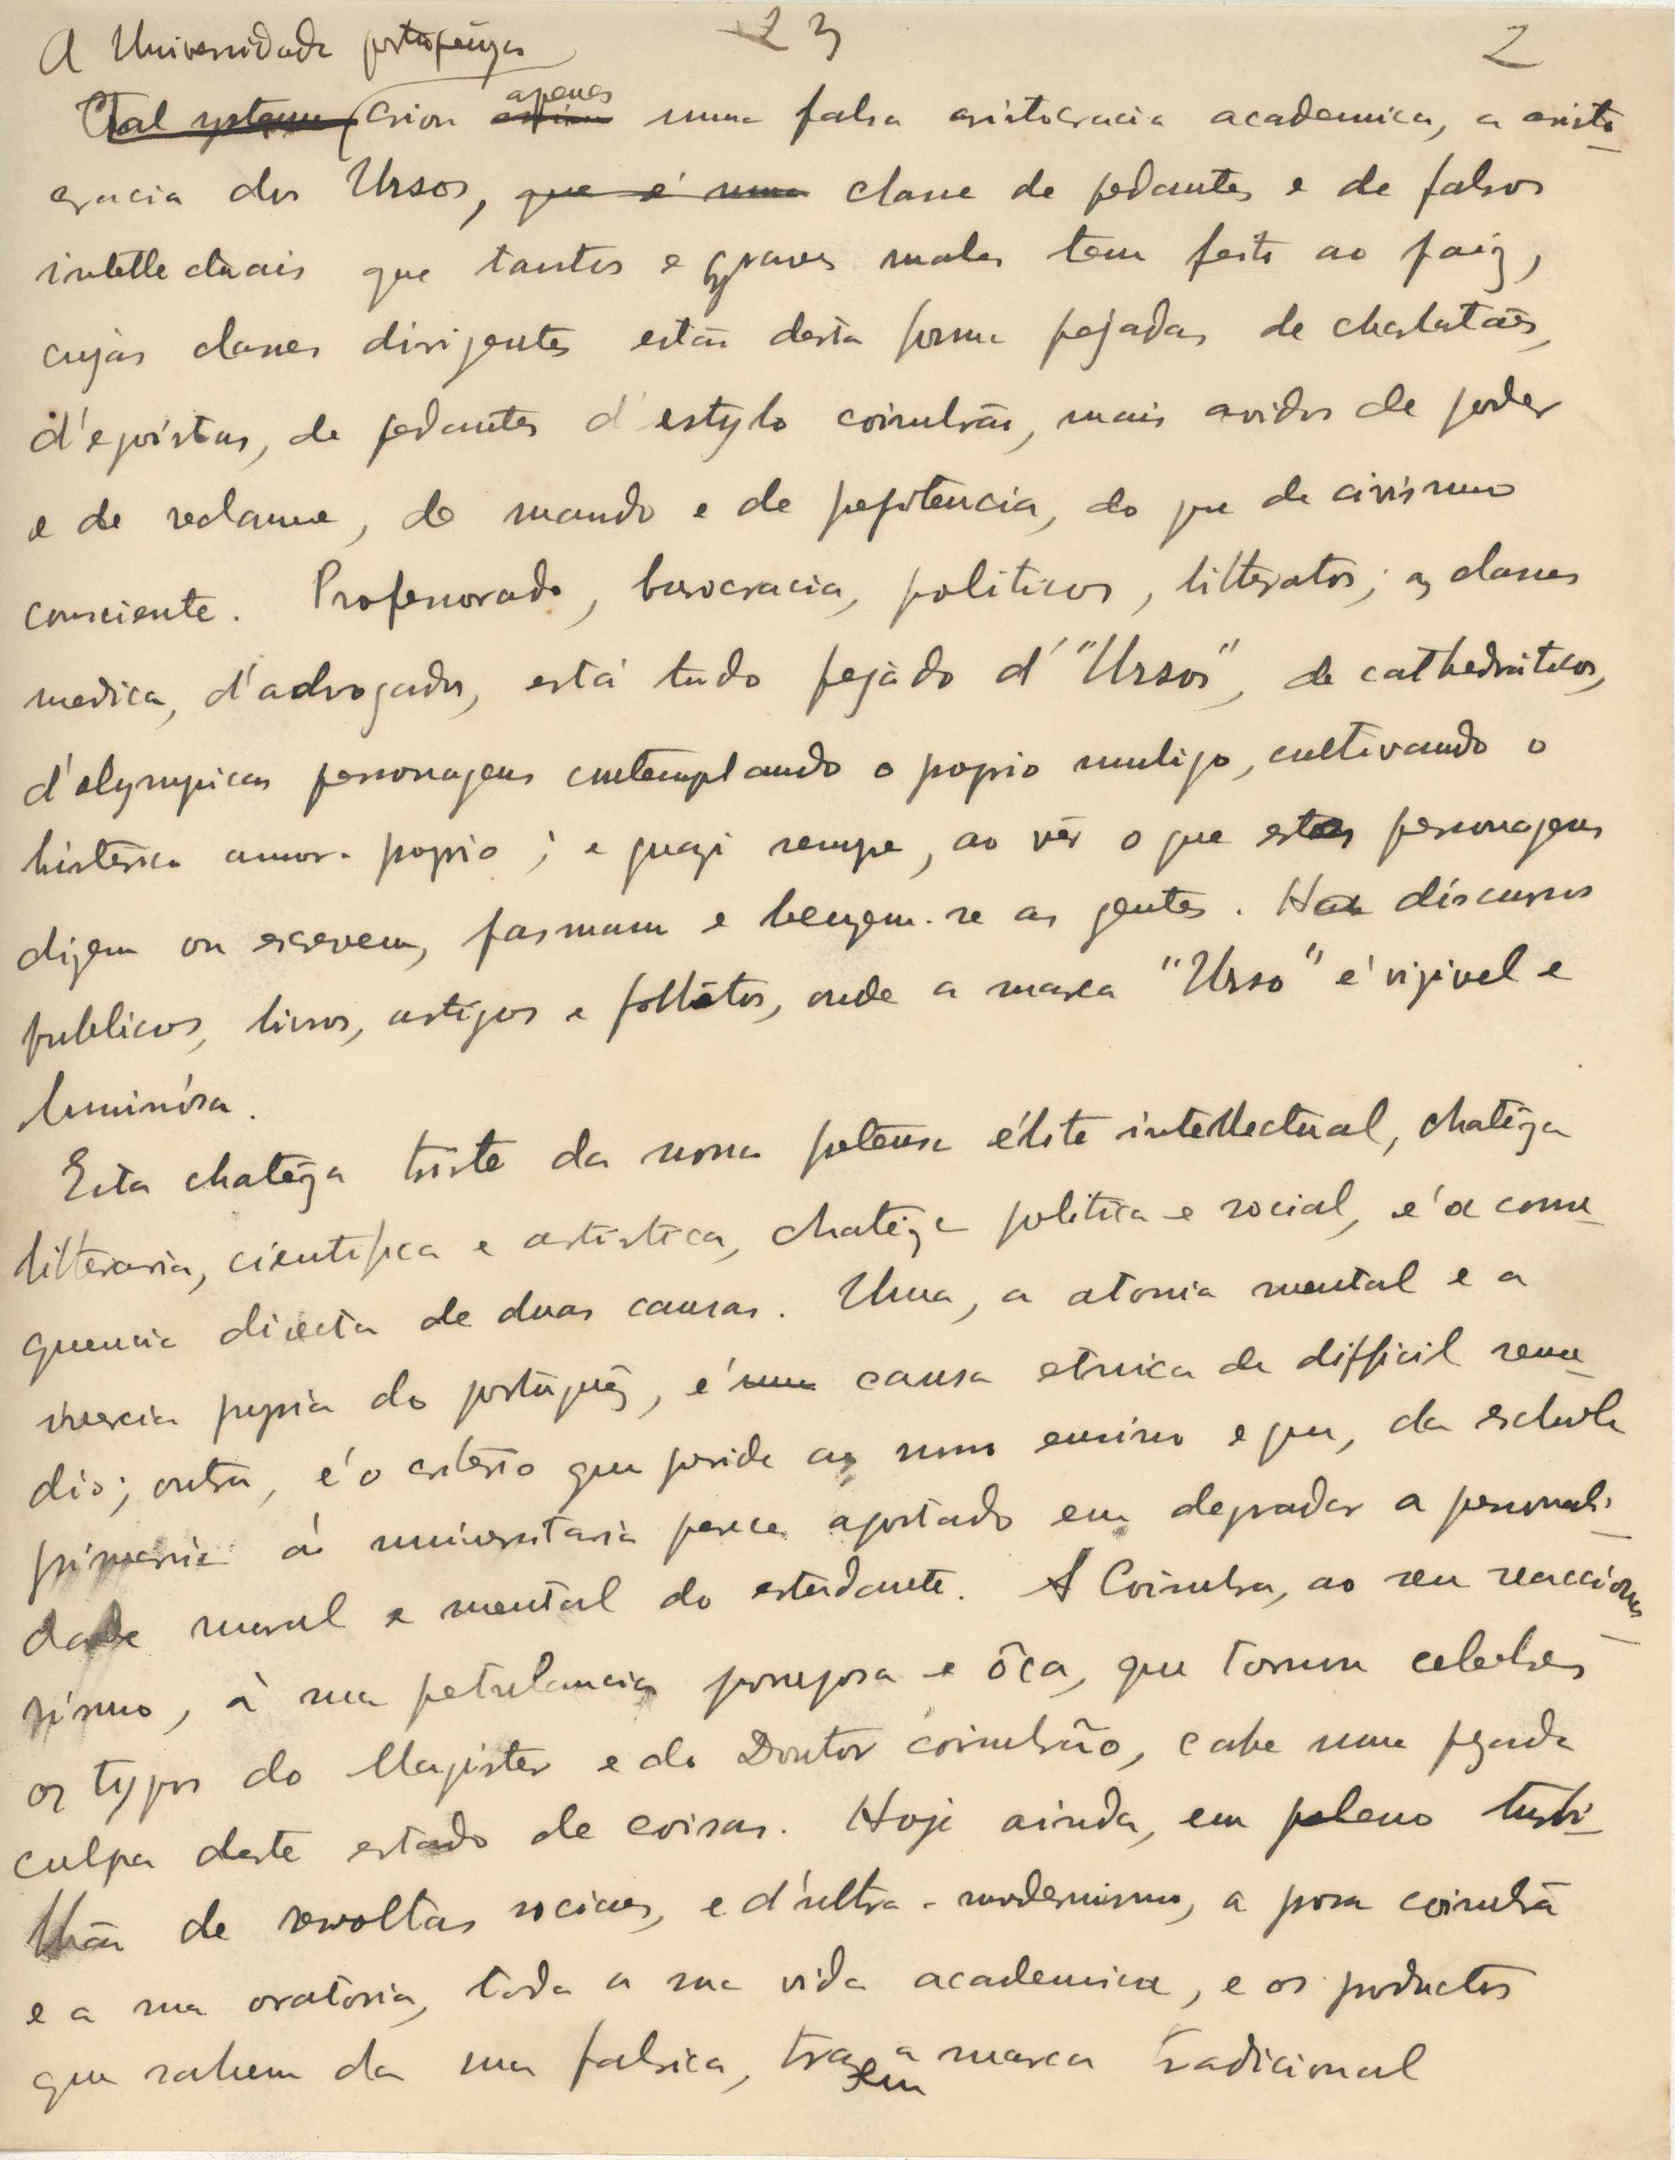 A Universidade portuguêza 23 2
Tal systema criou apenas uma falsa aristocracia academica, a aristo-
cracia dos Ursos, que é uma classe de pedantes e de falsos
intellectuais que tantos e graves males tem feito ao paiz,
cujas classes dirigentes estão desta forma pejadas de charlatães,
d'egoistas, de pedantes d'estylo coimbrão, mais avidos de poder
e de reclame, de mando e de pepitencia, do que de civismo
consciente. Professorado, burocracia, politicos, litteratos; as classes
medica, d'advogados, está tudo pejado d'"Ursos", de cathedráticos,
d'olympicas personagens contemplando o proprio umbigo, cultivando o
histérico amor-proprio; e quazi sempre, ao vêr o que estas personagens
dizem ou escrevem, pasmam e benzem-se as gentes. Ha discursos
publicos, livros, artigos e folhêtos, onde a marca "Urso" é vizivel e
luminósa.
Esta chatêza triste da nossa pretensa élite intellectual, chatêza
litteraria, cientifica e artistica, chatêza politica e social, é a conse-
quencia directa de duas causas. Uma, a atonia mental e a
inercia propria do portuguêz, é uma causa etnica de difficil reme-
dio; outra, é o criterio que preside ao nosso ensino e que, da eschola
primaria á universitaria parece apostado em degradar a personali-
dade moral e mental do estudante. A Coimbra, ao seu reacciona-
rismo, à sua petulancia pomposa e ôca, que tornou celebres
os typos do Magister e do Doutor coimbrão, cabe uma pezada
culpa deste estado de coisas. Hoje ainda, em pleno turbi-
lhão de revoltas sociaes, e d'ultra-modernismo, a prosa coimbrã
e a sua oratoria, toda a sua vida academica, e os productos
que sahem da sua fabrica, trazem a marca tradicional